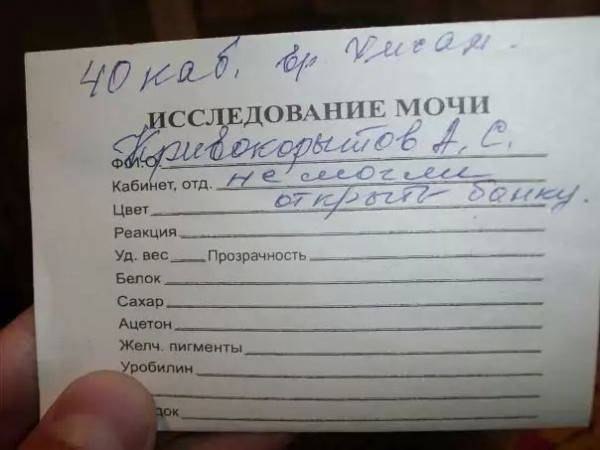 40 каб. вр.
ИССЛЕДОВАНИЕ МОЧИ
Ф.И.О. Кривокорытов А. С.
Кабинет, отд. не могли
Цвет открыть банку.
Реакция
Уд. вес Прозрачность
Белок
Сахар
Ацетон
Желч. пигменты
Уробилин
док